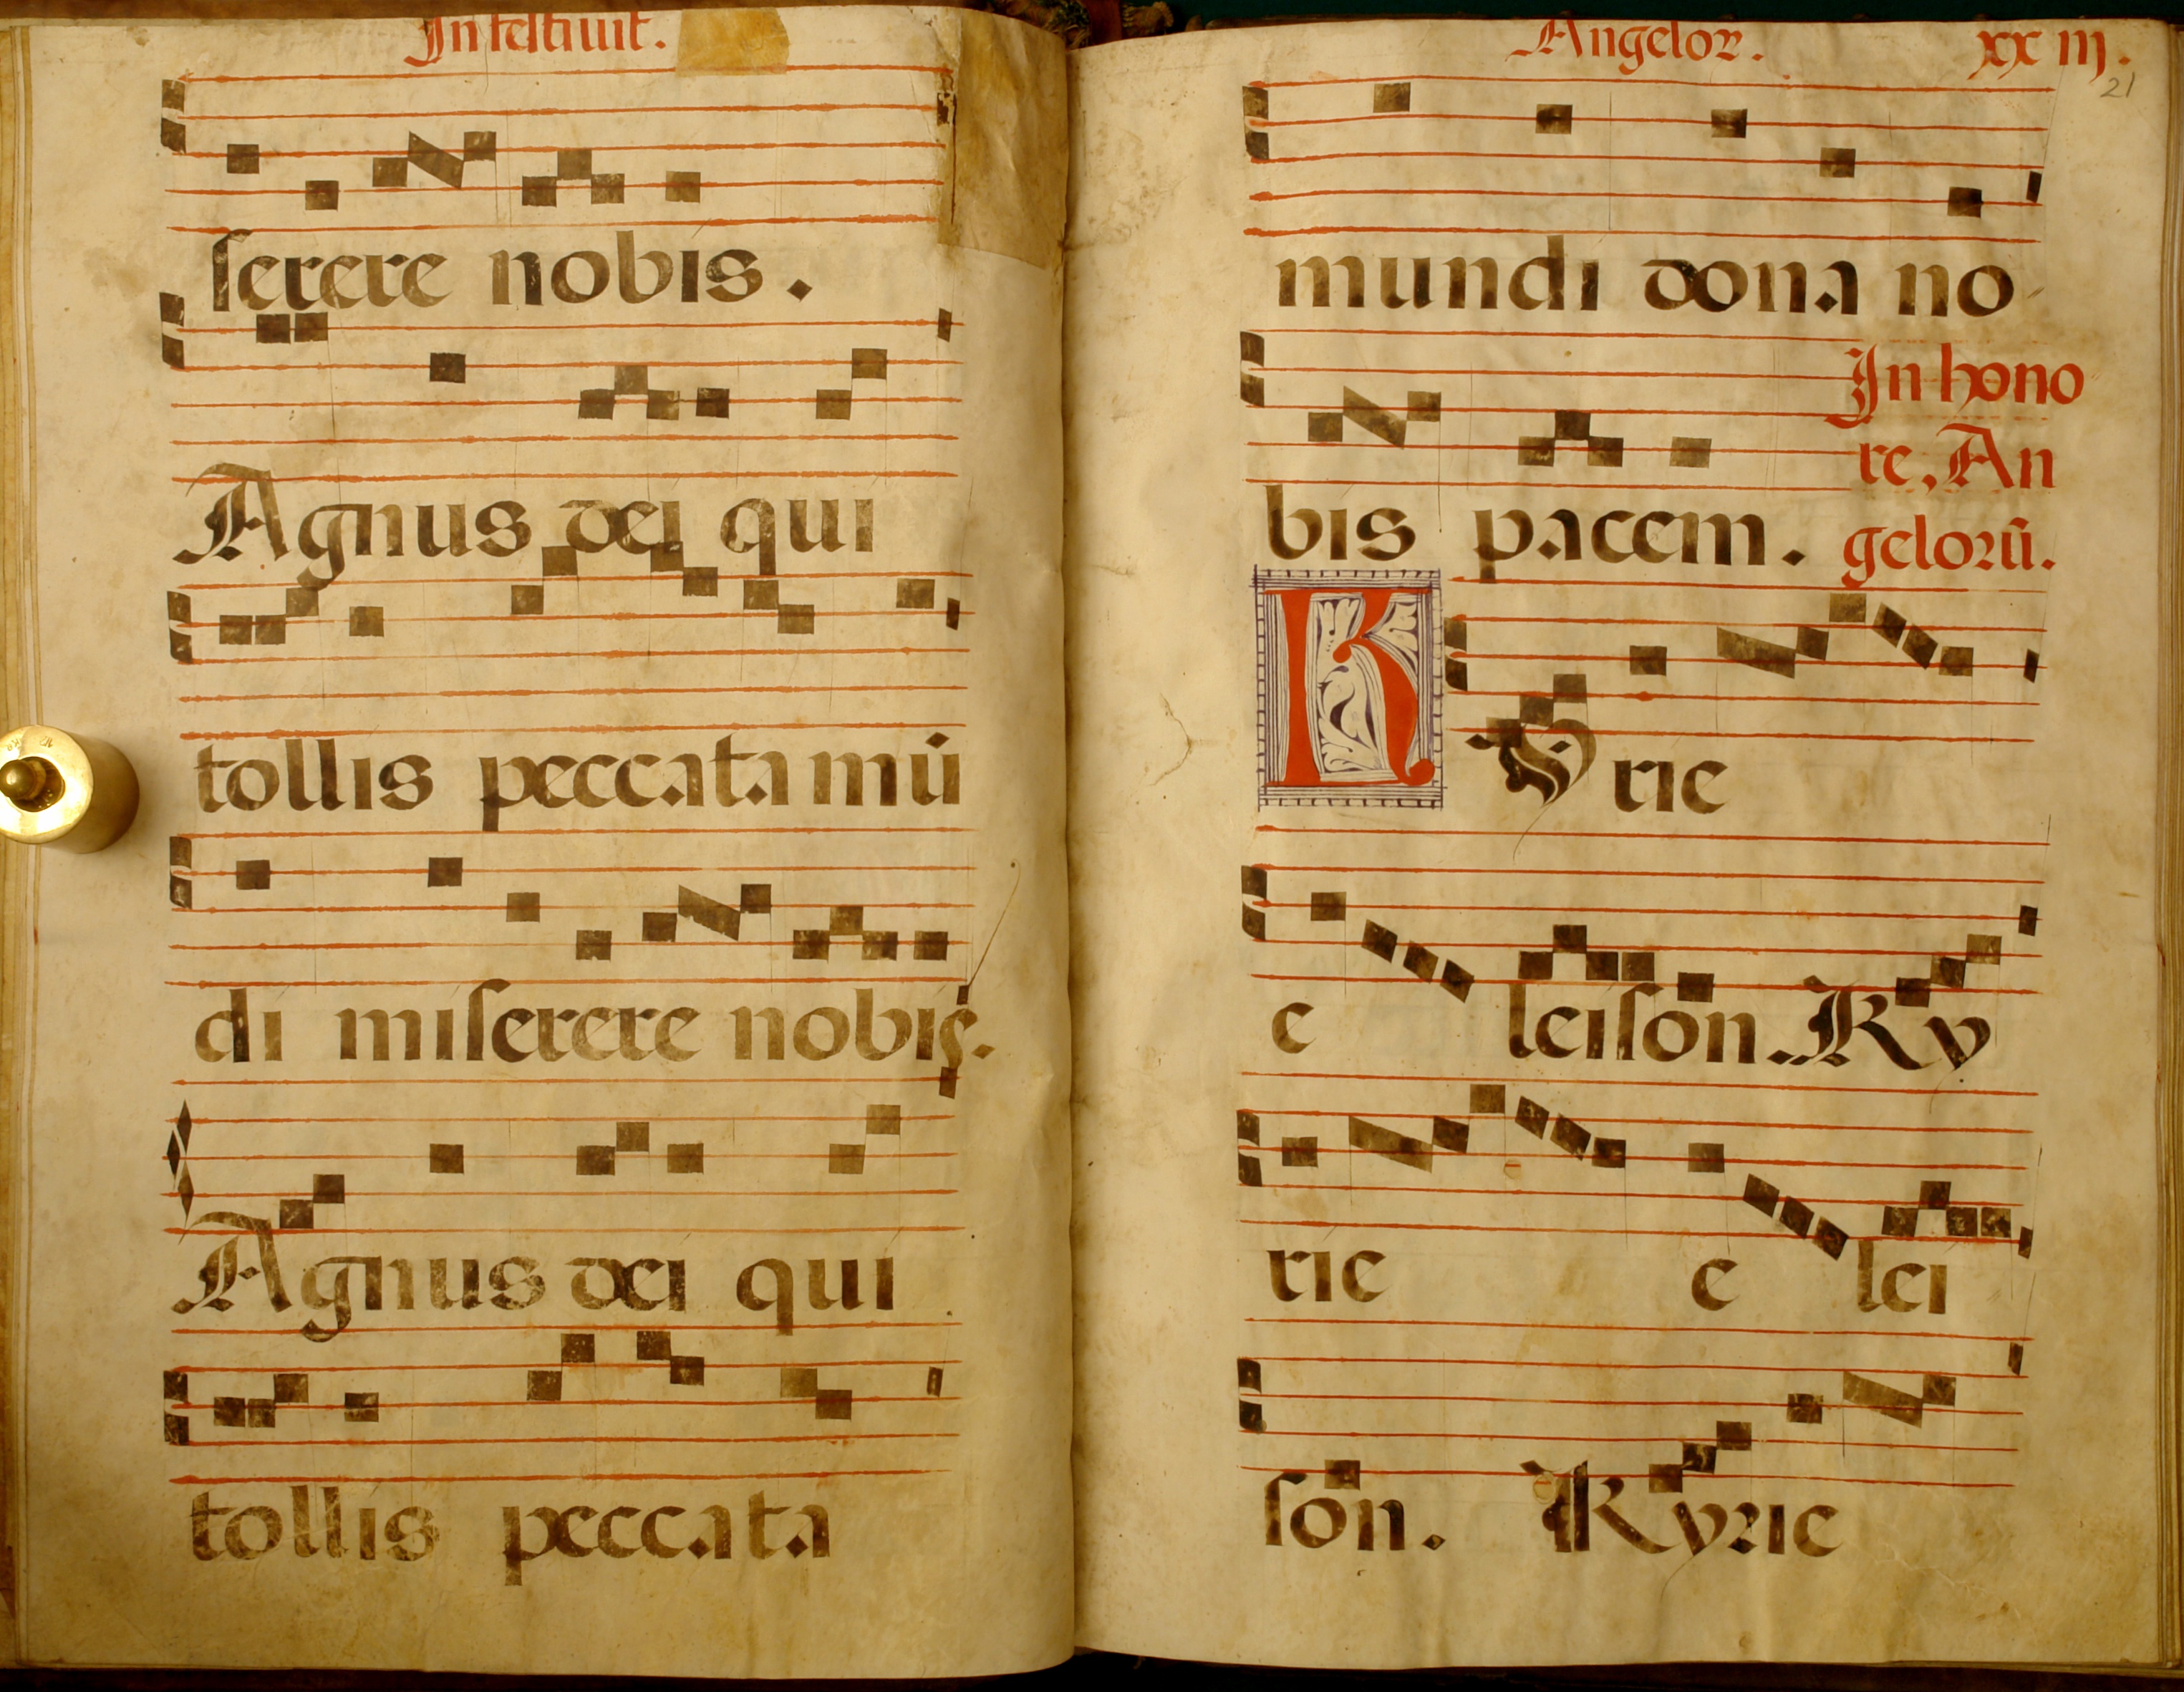 In festiuit.
serere nobis.
Agnus dei qui
tollis peccata mū
di miserere nobis.
Agnus dei qui
tollis peccata
Angeloꝝ. xxiij.
21
mundi dona no
In hono
re, An
bis pacem. geloꝛū.
K Yrie
e leiſon. Ky
rie e lei
ſon. Kyꝛie